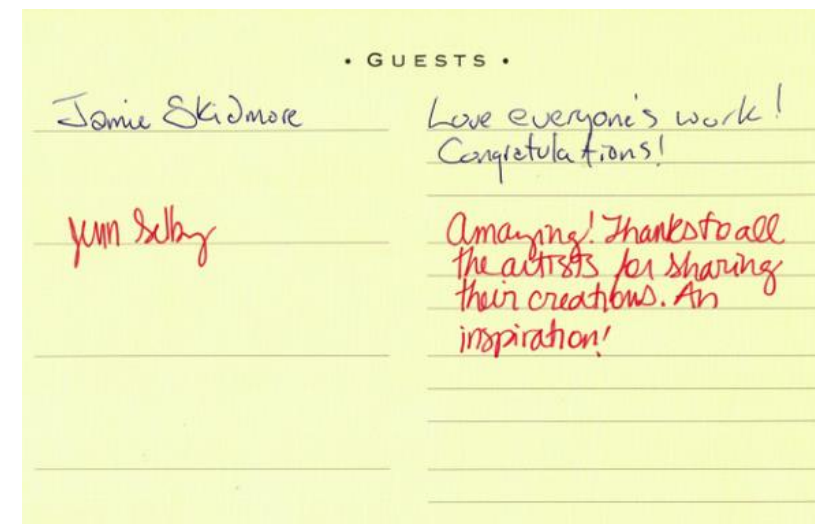 • GUESTS •
Jamie Skidmore
Love everyone's work!
Congratulations!
Jenn Selby
Amazing! Thanks to all
the artists for sharing
their creations. An
inspiration!